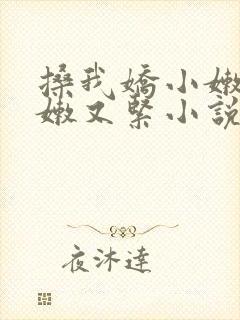 搡我嬌小嫩
嫩又緊小說
夜沐達